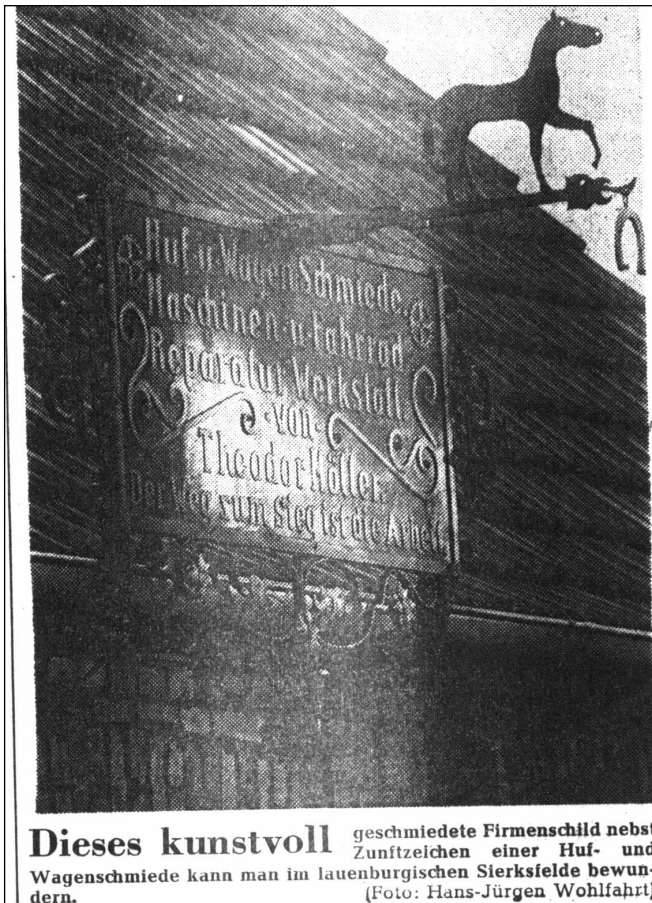 Huf u. Wagen Schmiede.
Maschinen-u-Fahrrad
Reparatur Werkstatt
-von-
Theodor
Der Weg zum Sieg ist die Arbeit
Dieses kunstvoll geschmiedete Firmenschild nebst
Zunftzeichen einer Huf- und
Wagenschmiede kann man im lauenburgischen Sierksfelde bewun-
dern. (Foto: Hans-Jürgen Wohlfahrt)